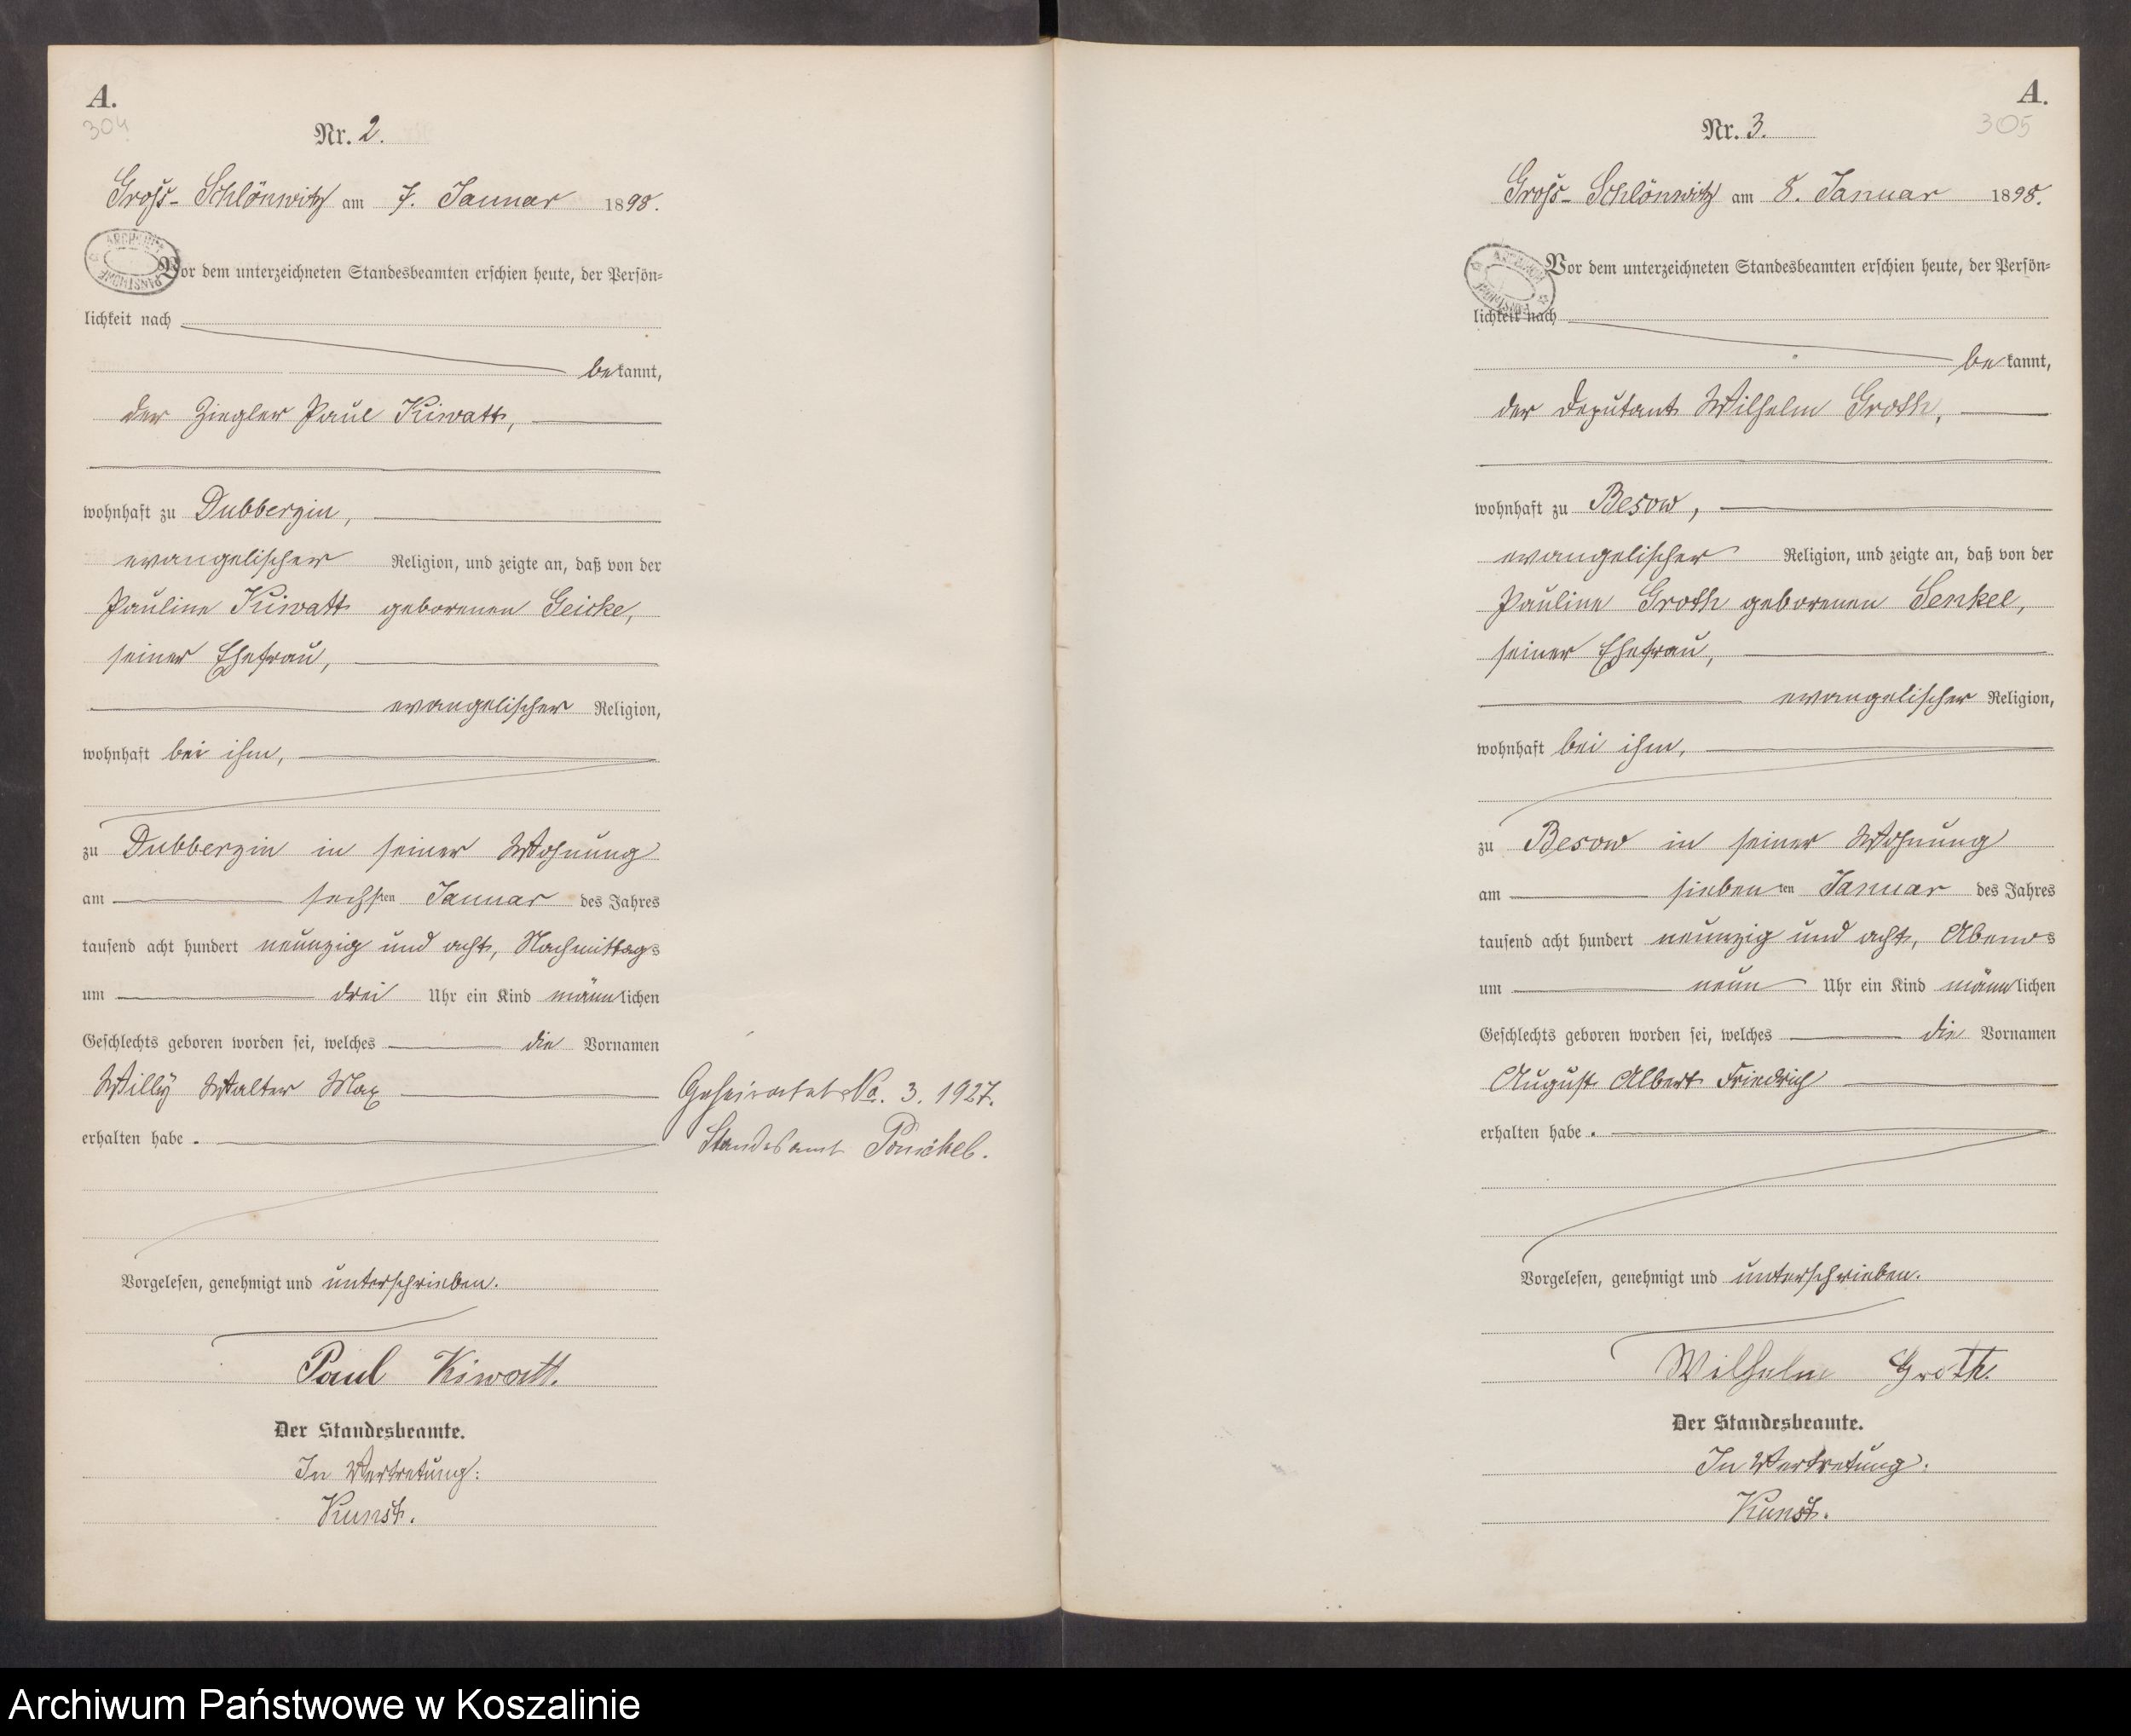 A.
304
Nr. 2.
Groß-Schlönwitz am 7. Januar 1898.
Vor dem unterzeichneten Standesbeamten erschien heute, der Persön-
lichkeit nach
bekannt,
der Ziegler Paul Kiwatt,
wohnhaft zu Dubberzin,
evangelischer Religion, und zeigte an, daß von der
Pauline Kiwatt geborenen Geicke,
seiner Ehefrau,
evangelischer Religion,
wohnhaft bei ihm,
zu Dubberzin in seiner Wohnung
am sechsten Januar des Jahres
tausend acht hundert neunzig und acht, Nachmittags
um drei Uhr ein Kind männlichen
Geschlechts geboren worden sei, welches die Vornamen
Willy Walter Max
erhalten habe.
Geheiratet No. 3. 1927.
Standesamt Ponickel.
Vorgelesen, genehmigt und unterschrieben.
Paul Kiwatt.
Der Standesbeamte.
In Vertretung:
Kunst.
A.
305
Nr. 3.
Groß-Schlönwitz am 8. Januar 1898.
Vor dem unterzeichneten Standesbeamten erschien heute, der Persön-
lichkeit nach
bekannt,
der Deputant Wilhelm Groth,
wohnhaft zu Besow,
evangelischer Religion, und zeigte an, daß von der
Pauline Groth geborenen Senkel,
seiner Ehefrau,
evangelischer Religion,
wohnhaft bei ihm,
zu Besow in seiner Wohnung
am siebenten Januar des Jahres
tausend acht hundert neunzig und acht, Abends
um neun Uhr ein Kind männlichen
Geschlechts geboren worden sei, welches die Vornamen
August Albert Friedrich
erhalten habe.
Vorgelesen, genehmigt und unterschrieben.
Wilhelm Groth.
Der Standesbeamte.
In Vertretung:
Kunst.
Archiwum Państwowe w Koszalinie